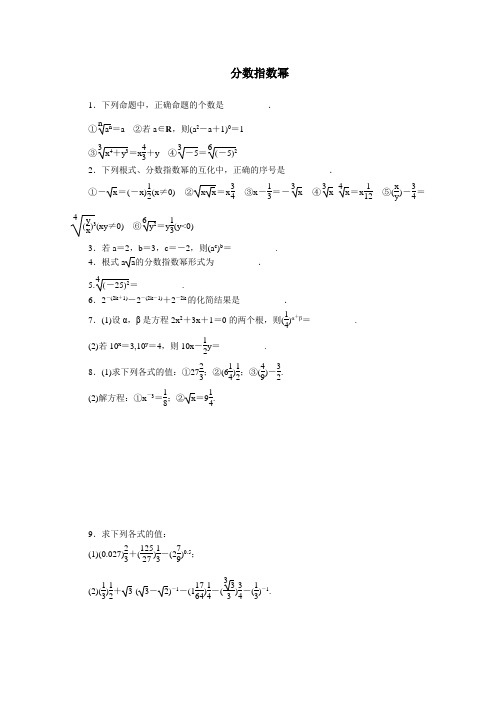 分数指数幂
1．下列命题中，正确命题的个数是__________．
①\sqrt[n]{a^n}＝a ②若a∈R，则(a²－a＋1)⁰＝1
③\sqrt[3]{x^4＋y^3}＝x^{\frac{4}{3}}＋y ④\sqrt[3]{－5}＝\sqrt[6]{(－5)^2}
2．下列根式、分数指数幂的互化中，正确的序号是__________．
①－\sqrt{x}＝(－x)^{\frac{1}{2}}(x≠0) ②\sqrt{x\sqrt{x}}＝x^{\frac{3}{4}} ③x^{－\frac{1}{3}}＝－\sqrt[3]{x} ④\sqrt[3]{x}·\sqrt[4]{x}＝x^{\frac{1}{12}} ⑤(\frac{x}{y})^{－\frac{3}{4}}＝
\sqrt[4]{(\frac{y}{x})^3}(xy≠0) ⑥\sqrt[6]{y^2}＝y^{\frac{1}{3}}(y<0)
3．若a＝2，b＝3，c＝－2，则(a^c)^b＝__________．
4．根式a\sqrt{a}的分数指数幂形式为__________．
5.\sqrt[4]{(－25)^2}＝__________．
6．2^{－(2k＋1)}－2^{－(2k－1)}＋2^{－2k}的化简结果是__________．
7．(1)设α，β是方程2x²＋3x＋1＝0的两个根，则(\frac{1}{4})^{α＋β}＝__________．
(2)若10^x＝3,10^y＝4，则10^{x－\frac{1}{2}y}＝__________．
8．(1)求下列各式的值：①27^{\frac{2}{3}}；②(6\frac{1}{4})^{\frac{1}{2}}；③(\frac{4}{9})^{－\frac{3}{2}}.
(2)解方程：①x^{－3}＝\frac{1}{8}；②\sqrt{x}＝9^{\frac{1}{4}}.
9．求下列各式的值：
(1)(0.027)^{\frac{2}{3}}＋(\frac{125}{27})^{\frac{1}{3}}－(2\frac{7}{9})^{0.5}；
(2)(\frac{1}{3})^{\frac{1}{2}}＋\sqrt{3}·(\sqrt{3}－\sqrt{2})^{－1}－(1\frac{17}{64})^{\frac{1}{4}}－(\frac{\sqrt[3]{3}}{3})^{\frac{3}{4}}－(\frac{1}{3})^{－1}.